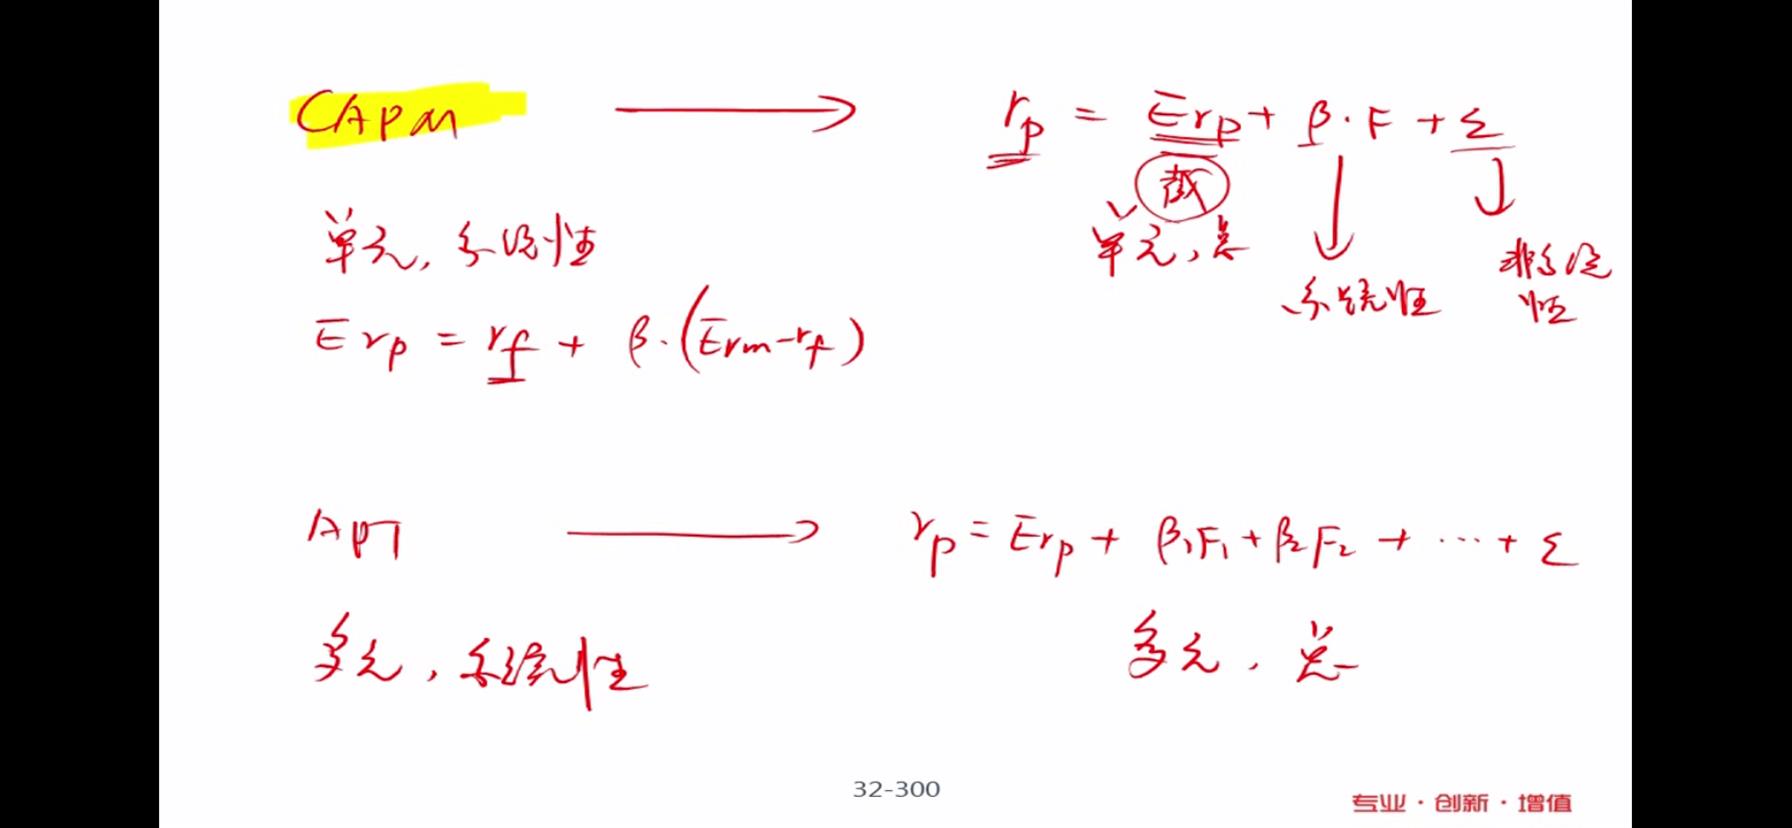 CAPM → rp = Erp + β·F + ε
截
单元, 系统性
单元, 总
系统性
非系统性
Erp = rf + β·(Erm-rf)
APT → rp = Erp + β₁F₁ + β₂F₂ + ··· + ε
多元, 系统性
多元, 总
32-300
专业·创新·增值